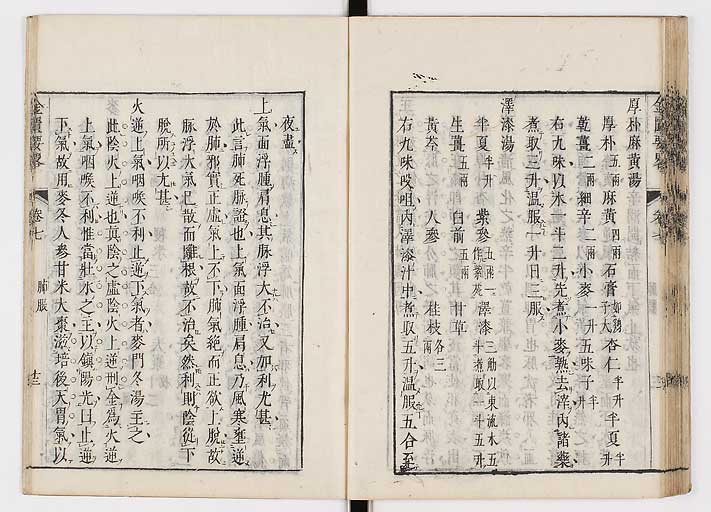 厚朴麻黄湯
厚朴五兩麻黄四兩石膏如雞子大杏仁半升半夏半升
乾薑二兩細辛二兩小麥一升五味子半升
右九味以水一斗二升先煮小麥熟去滓内諸藥
煮取三升温服一升日三服
澤漆湯
半夏半升 紫參五兩一作紫菀 澤漆三觔以東流水五斗煮取一斗五升
生薑五兩 白前五兩 甘草
黄芩 人參 桂枝各三兩
右九味㕮咀内澤漆汁中煮取五升温服五合至
夜盡
上氣面浮腫肩息其脉浮大不治又加利尤甚
此言肺死脉證也上氣面浮腫肩息乃風寒壅逆
於肺邪實正虚氣上不下肺氣絶而正欲上脱故
脉浮大氣已散而難根故不治矣然利則陰從下
脱所以尤甚
火逆上氣咽喉不利止逆下氣者麥門冬湯主之
此陰火上逆也眞陰之虚陰火上逆刑金為火逆
上氣咽喉不利惟當壯水之主以鎮陽光曰止逆
下氣故用麥冬人參甘米大棗滋培後天胃氣以
金匱要畧 卷七 肺脹 十三